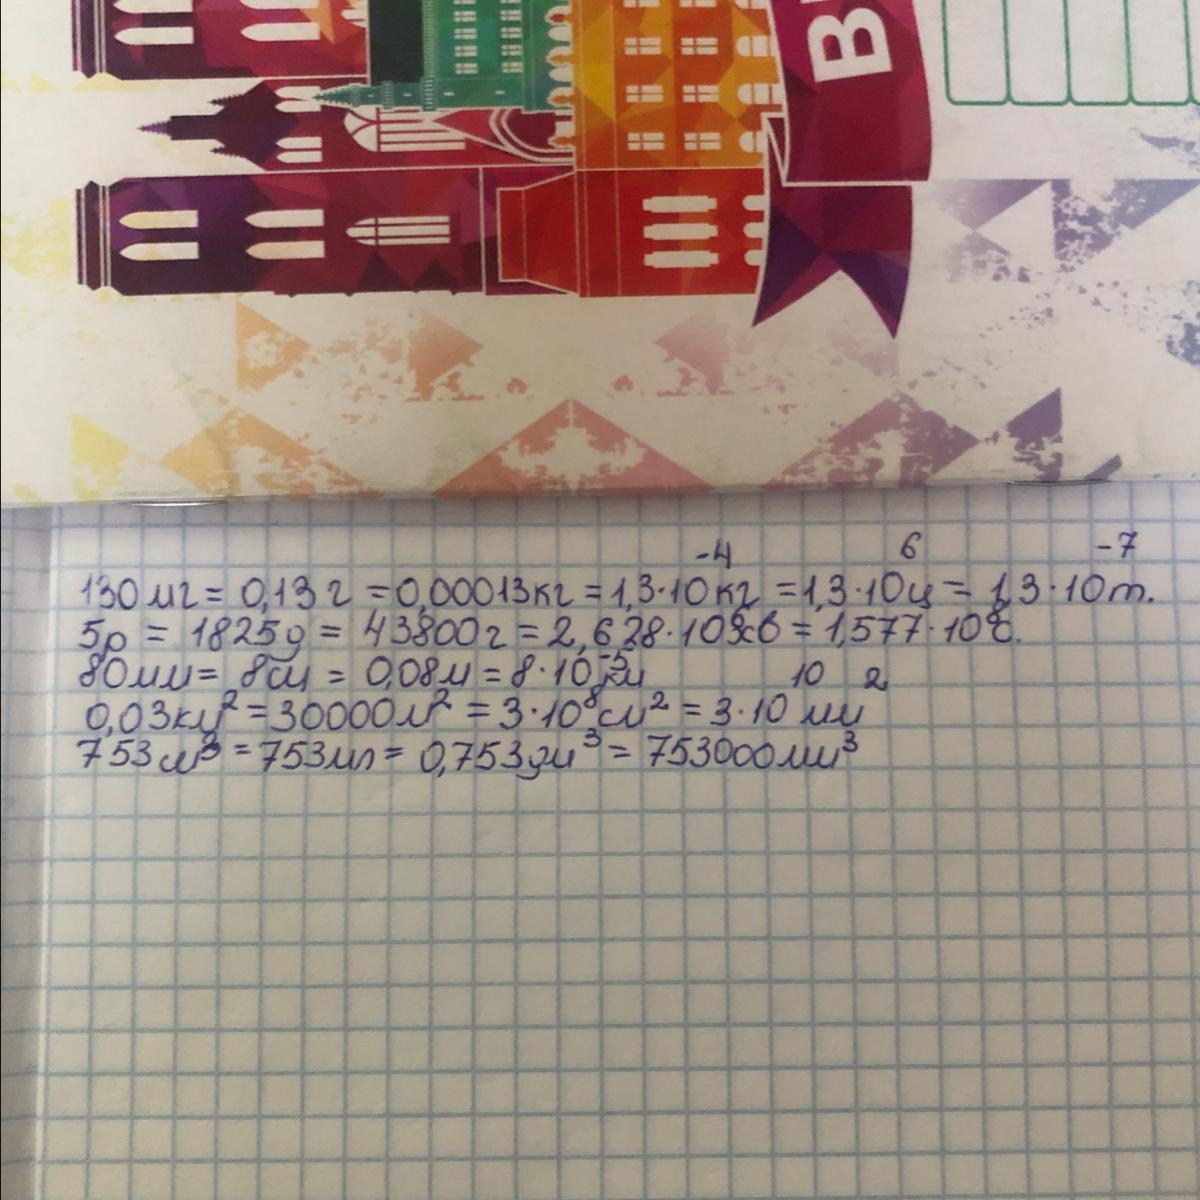 В
130 мг = 0,13 г = 0,00013 кг = 1,3·10⁻⁴ кг = 1,3·10⁶ ц = 1,3·10⁻⁷ т.
5р = 1825д = 43800г = 2,628·10⁶ хв = 1,577·10⁸ с.
80мм = 8см = 0,08м = 8·10⁻⁵ км
0,03км² = 30000м² = 3·10⁸ см² = 3·10¹⁰ мм²
753см³ = 753мл = 0,753дм³ = 753000мм³